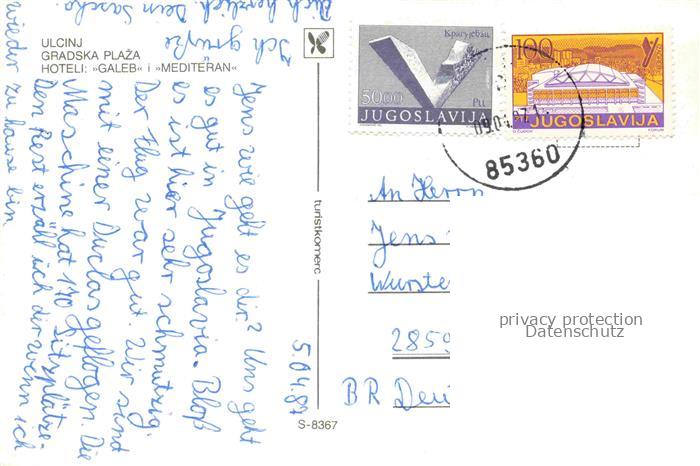 ULCINJ
GRADSKA PLAŽA
HOTELI: »GALEB« i »MEDITERAN«
Jens wie geht es dir? Uns geht
es gut in Jugoslavia. Bloß
es ist hier sehr schmutzig.
Der Flug war gut. Wir sind
mit einer Duclas geflogen. Die
Maschine hat 170 Sitzplätze.
Den Rest erzähl ich dir wenn ich
wieder zu hause bin
Ich grüße
Dich herzlich. Dein Sascha.
5.04.87
turistkomerc
S-8367
Крагујевац
5000
Pll
JUGOSLAVIJA
100
JUGOSLAVIJA
85360
An Herrn
Jens
Wurste
285
BR Deu
privacy protection
Datenschutz